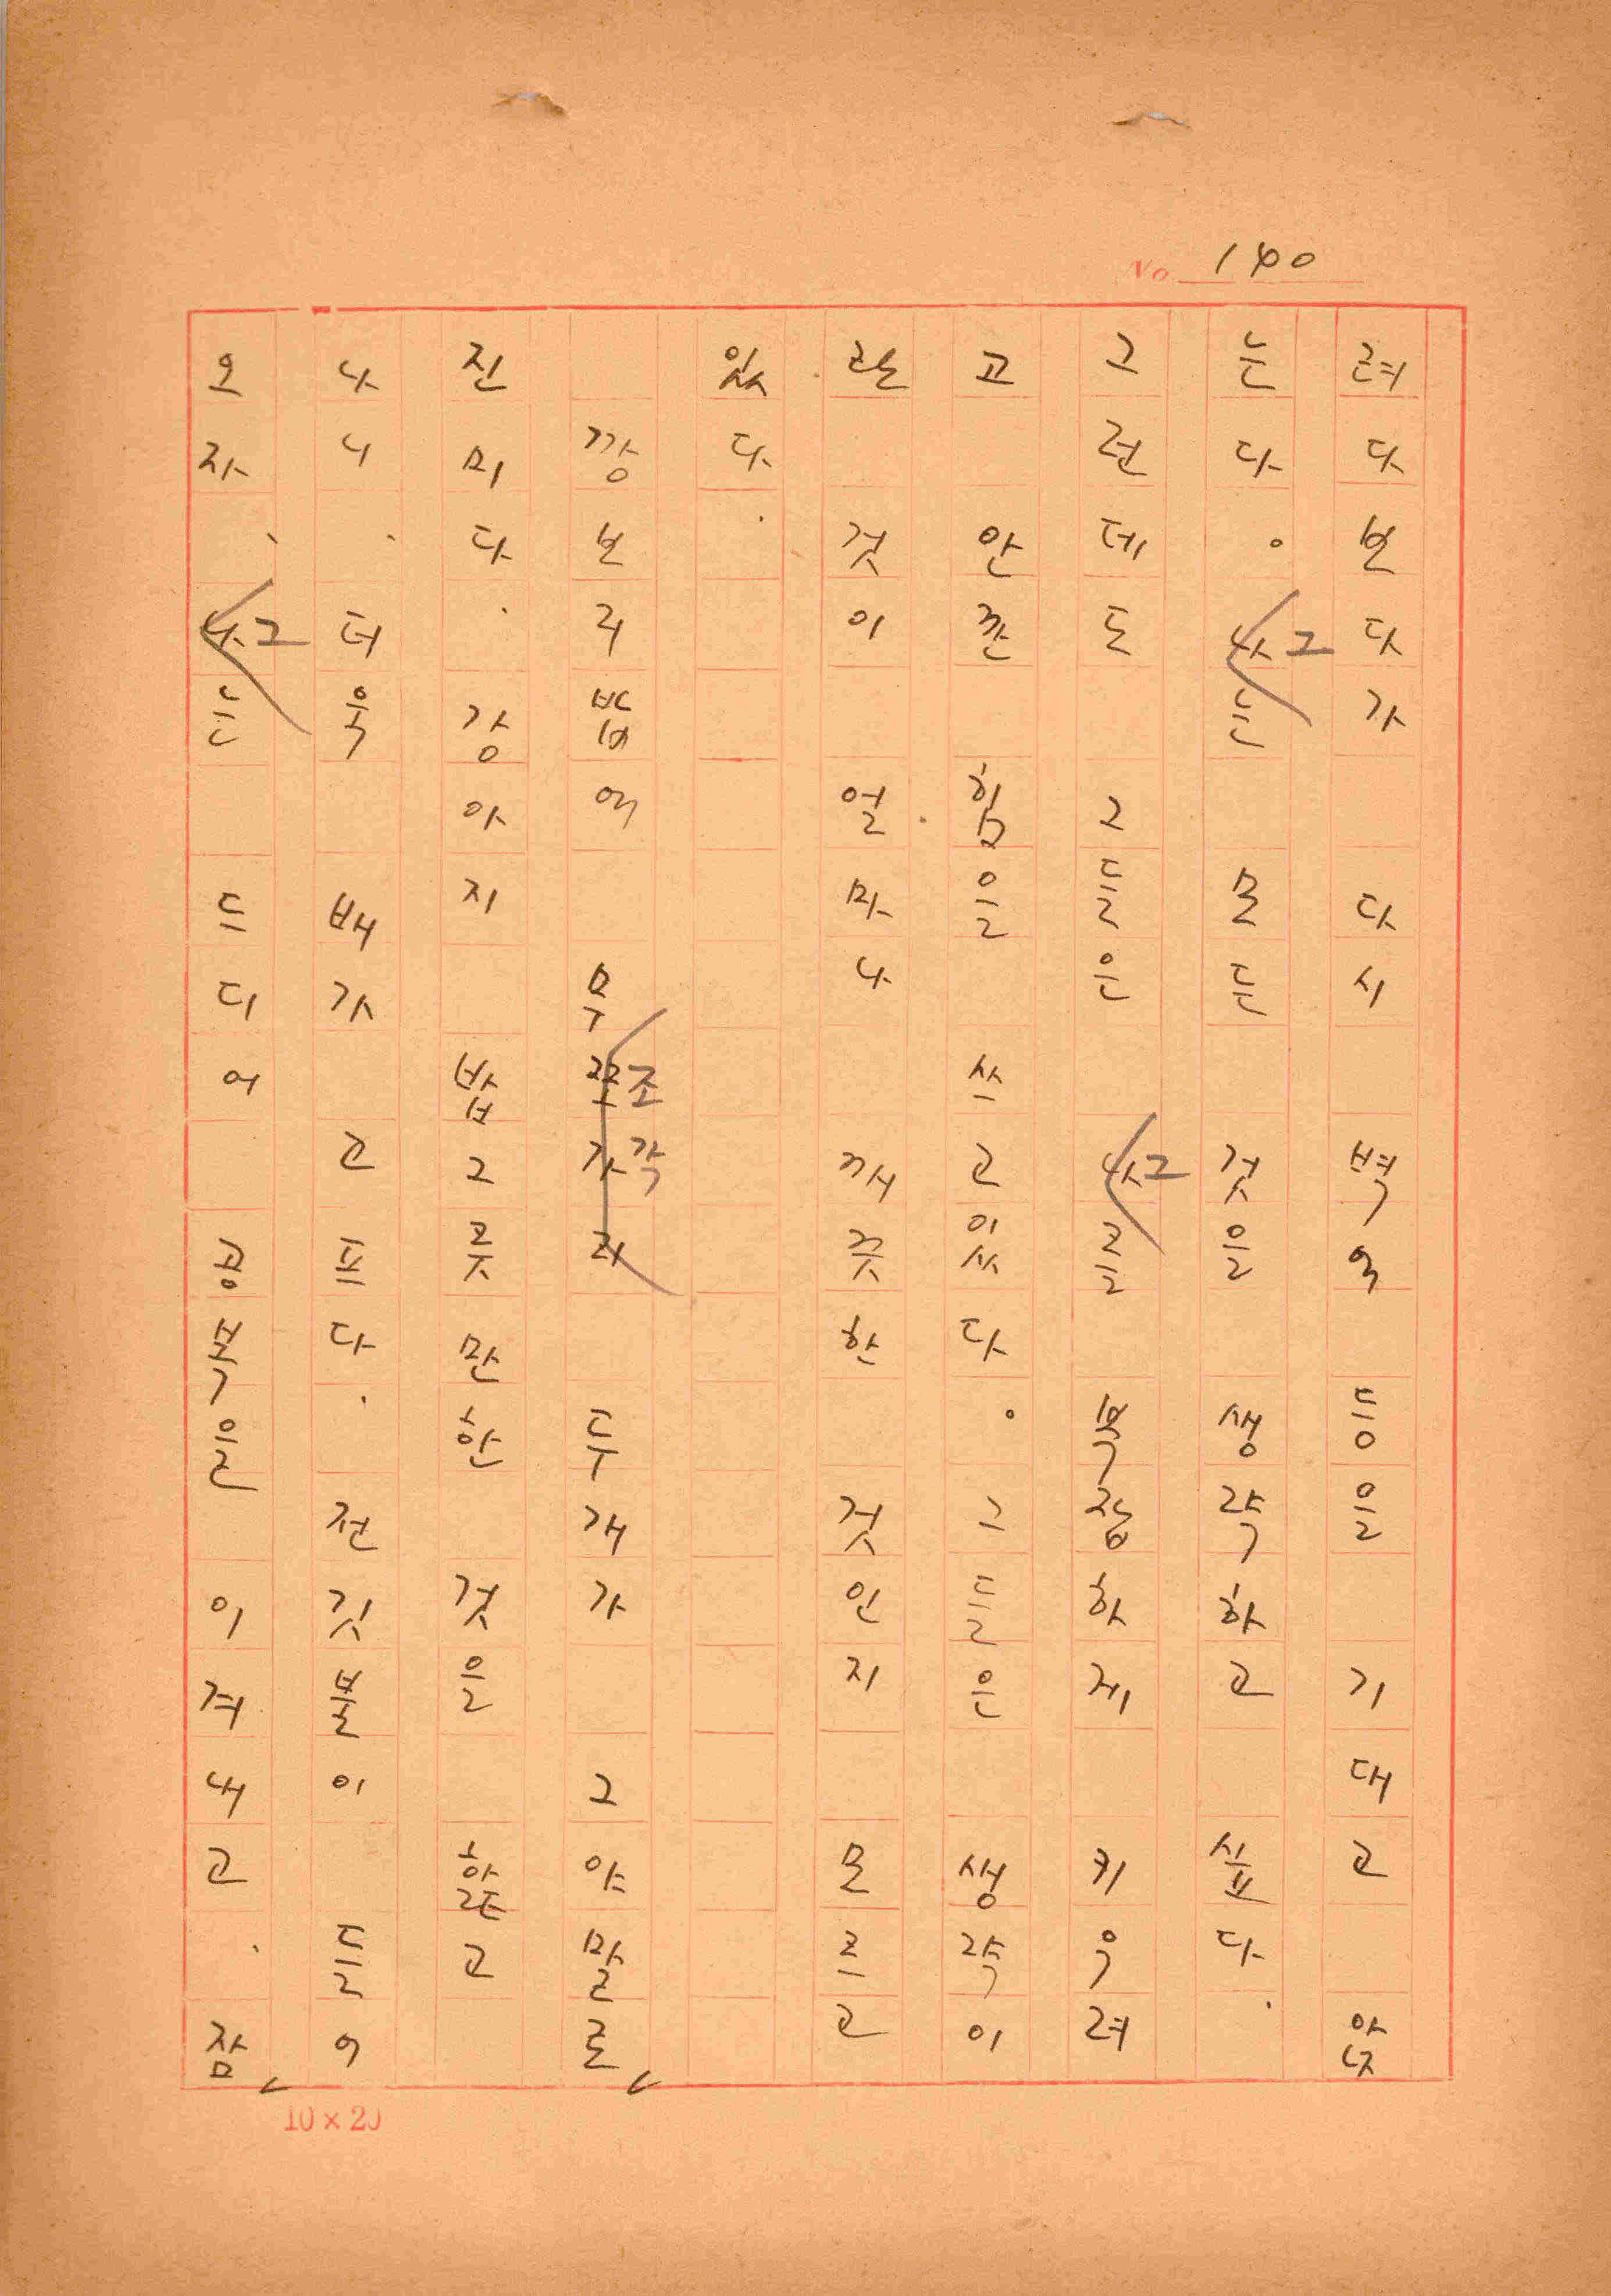 No. 140
려다본다가 다시 벽에 등을 기대고 앉
는다. 나그는 모든 것을 생각하고 싶다.
그런데도 그들은 나그를 복잡하게 키우려
고 안간 힘을 쓰고있다. 그들은 생각이
란 것이 얼마나 깨끗한 것인지 모르고
있다.
깡보리밥에 무꼬가리조각 두개가 그야말로
진미다. 강아지 밥그릇만한 것을 핥고
나니, 더욱 배가 고프다. 전깃불이 들어
오자, 나그는 드디어 공복을 이겨내고, 잠
10×20